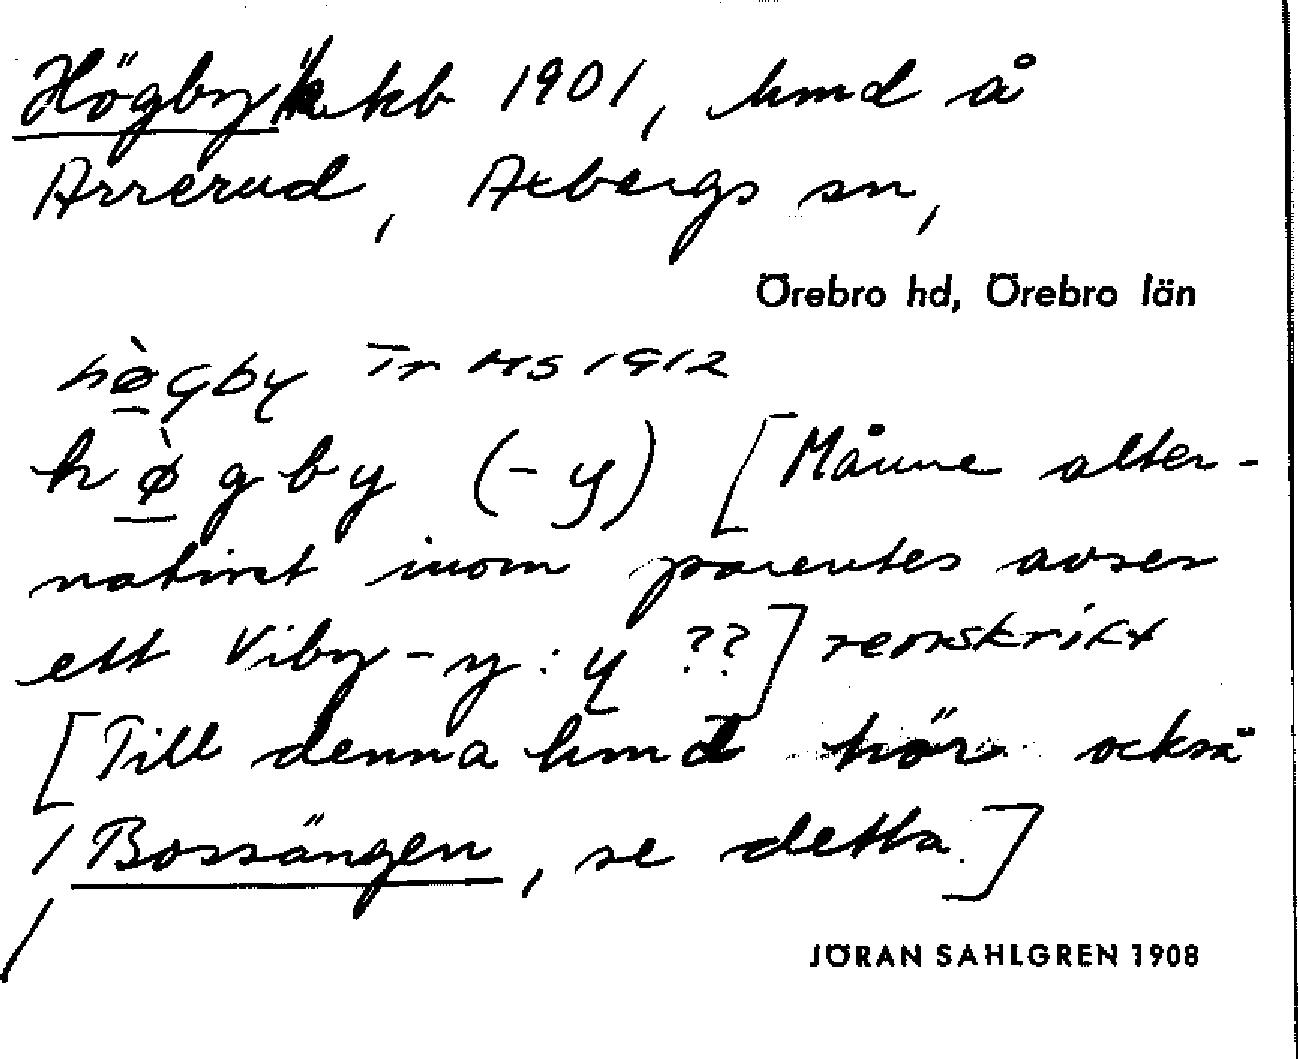 Högby kb 1901, hmd å
Arrerud, Axbergs sn,
Örebro hd, Örebro län
hø̀gby Tr HS 1912
hø̀gby (-y) [Månne alter-
nativet inom parentes avser
ett Viby-y: y ??] renskrift
[Till denna hmd hör också
Bossängen, se detta.]
JÖRAN SAHLGREN 1908